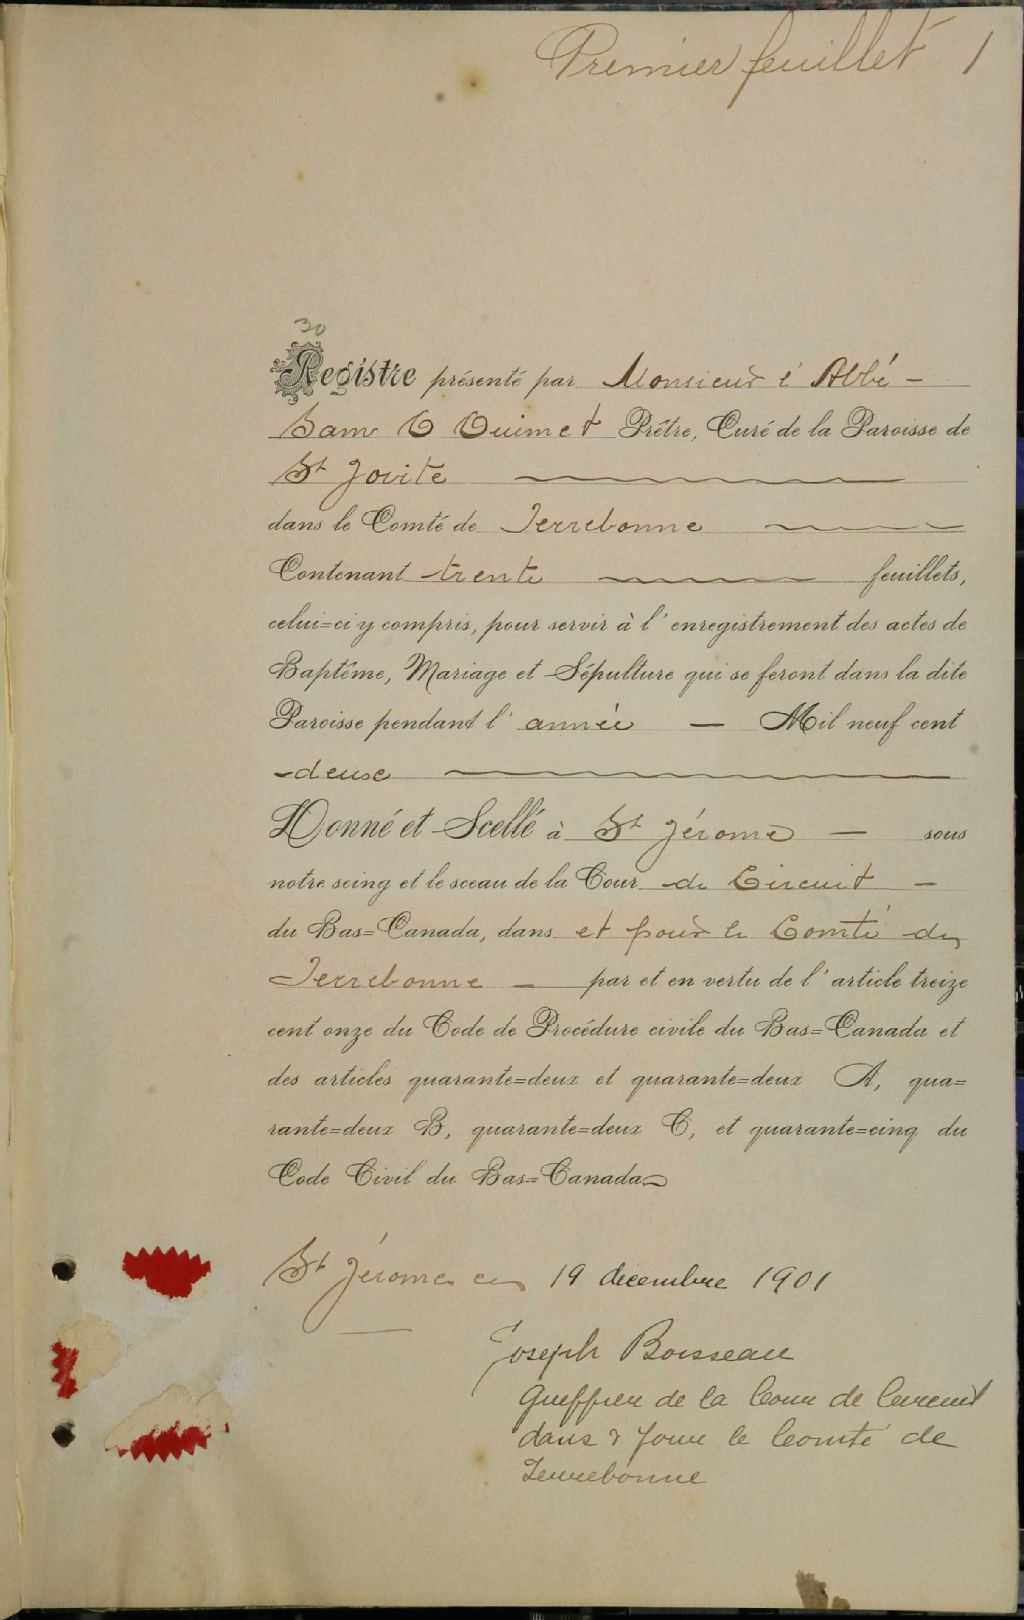 Premier feuillet 1
30
Registre présenté par Monsieur l'Abbé —
Sam O Ouimet Prêtre, Curé de la Paroisse de
St Jovite
dans le Comté de Terrebonne
Contenant trente feuillets,
celui=ci y compris, pour servir à l'enregistrement des actes de
Baptême, Mariage et Sépulture qui se feront dans la dite
Paroisse pendant l'année — Mil neuf cent
deuse
Donné et Scellé à St Jérome — sous
notre seing et le sceau de la Cour de Circuit —
du Bas=Canada, dans et pour le Comté de
Terrebonne — par et en vertu de l'article treize
cent onze du Code de Procédure civile du Bas=Canada et
des articles quarante=deux et quarante=deux A, qua=
rante=deux B, quarante=deux C, et quarante=cinq du
Code Civil du Bas=Canada.
St Jérome ce 19 decembre 1901
Joseph Boisseau
Greffier de la Cour de Circuit
dans & pour le Comté de
Terrebonne